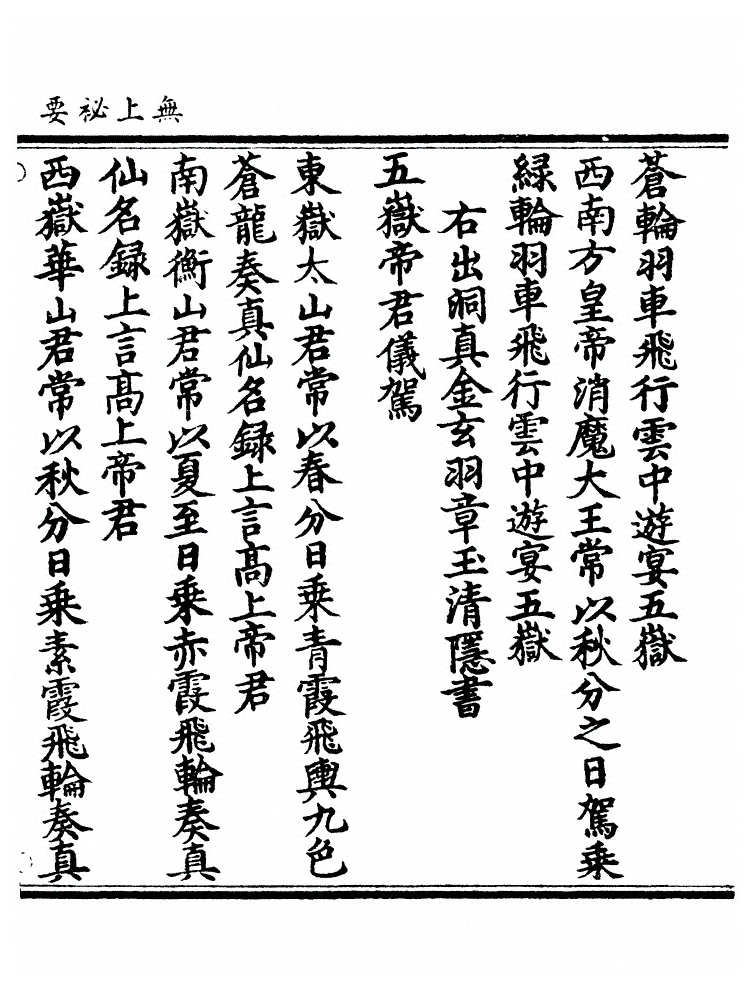 無上祕要
蒼輪羽車飛行雲中遊宴五嶽
西南方皇帝消魔大王常以秋分之日駕乘
緑輪羽車飛行雲中遊宴五嶽
右出洞真金玄羽章玉清隱書
五嶽帝君儀駕
東嶽太山君常以春分日乘青霞飛輿九色
蒼龍奏真仙名録上言髙上帝君
南嶽衡山君常以夏至日乘赤霞飛輪奏真
仙名録上言髙上帝君
西嶽華山君常以秋分日乘素霞飛輪奏真